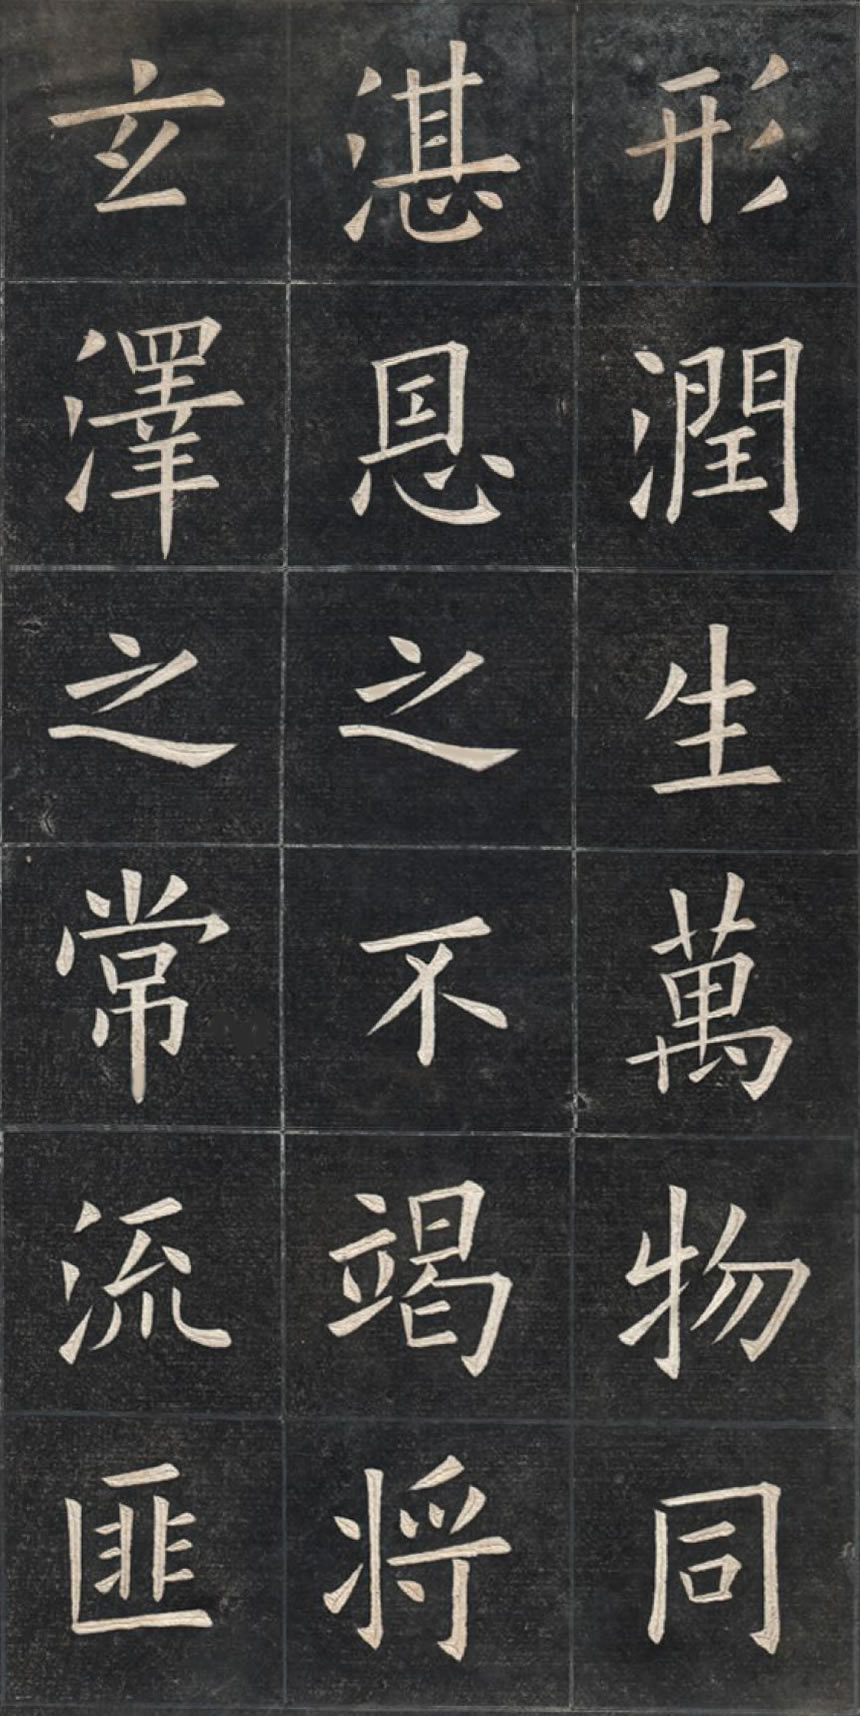 形潤生萬物同
湛恩之不竭将
玄澤之常流匪